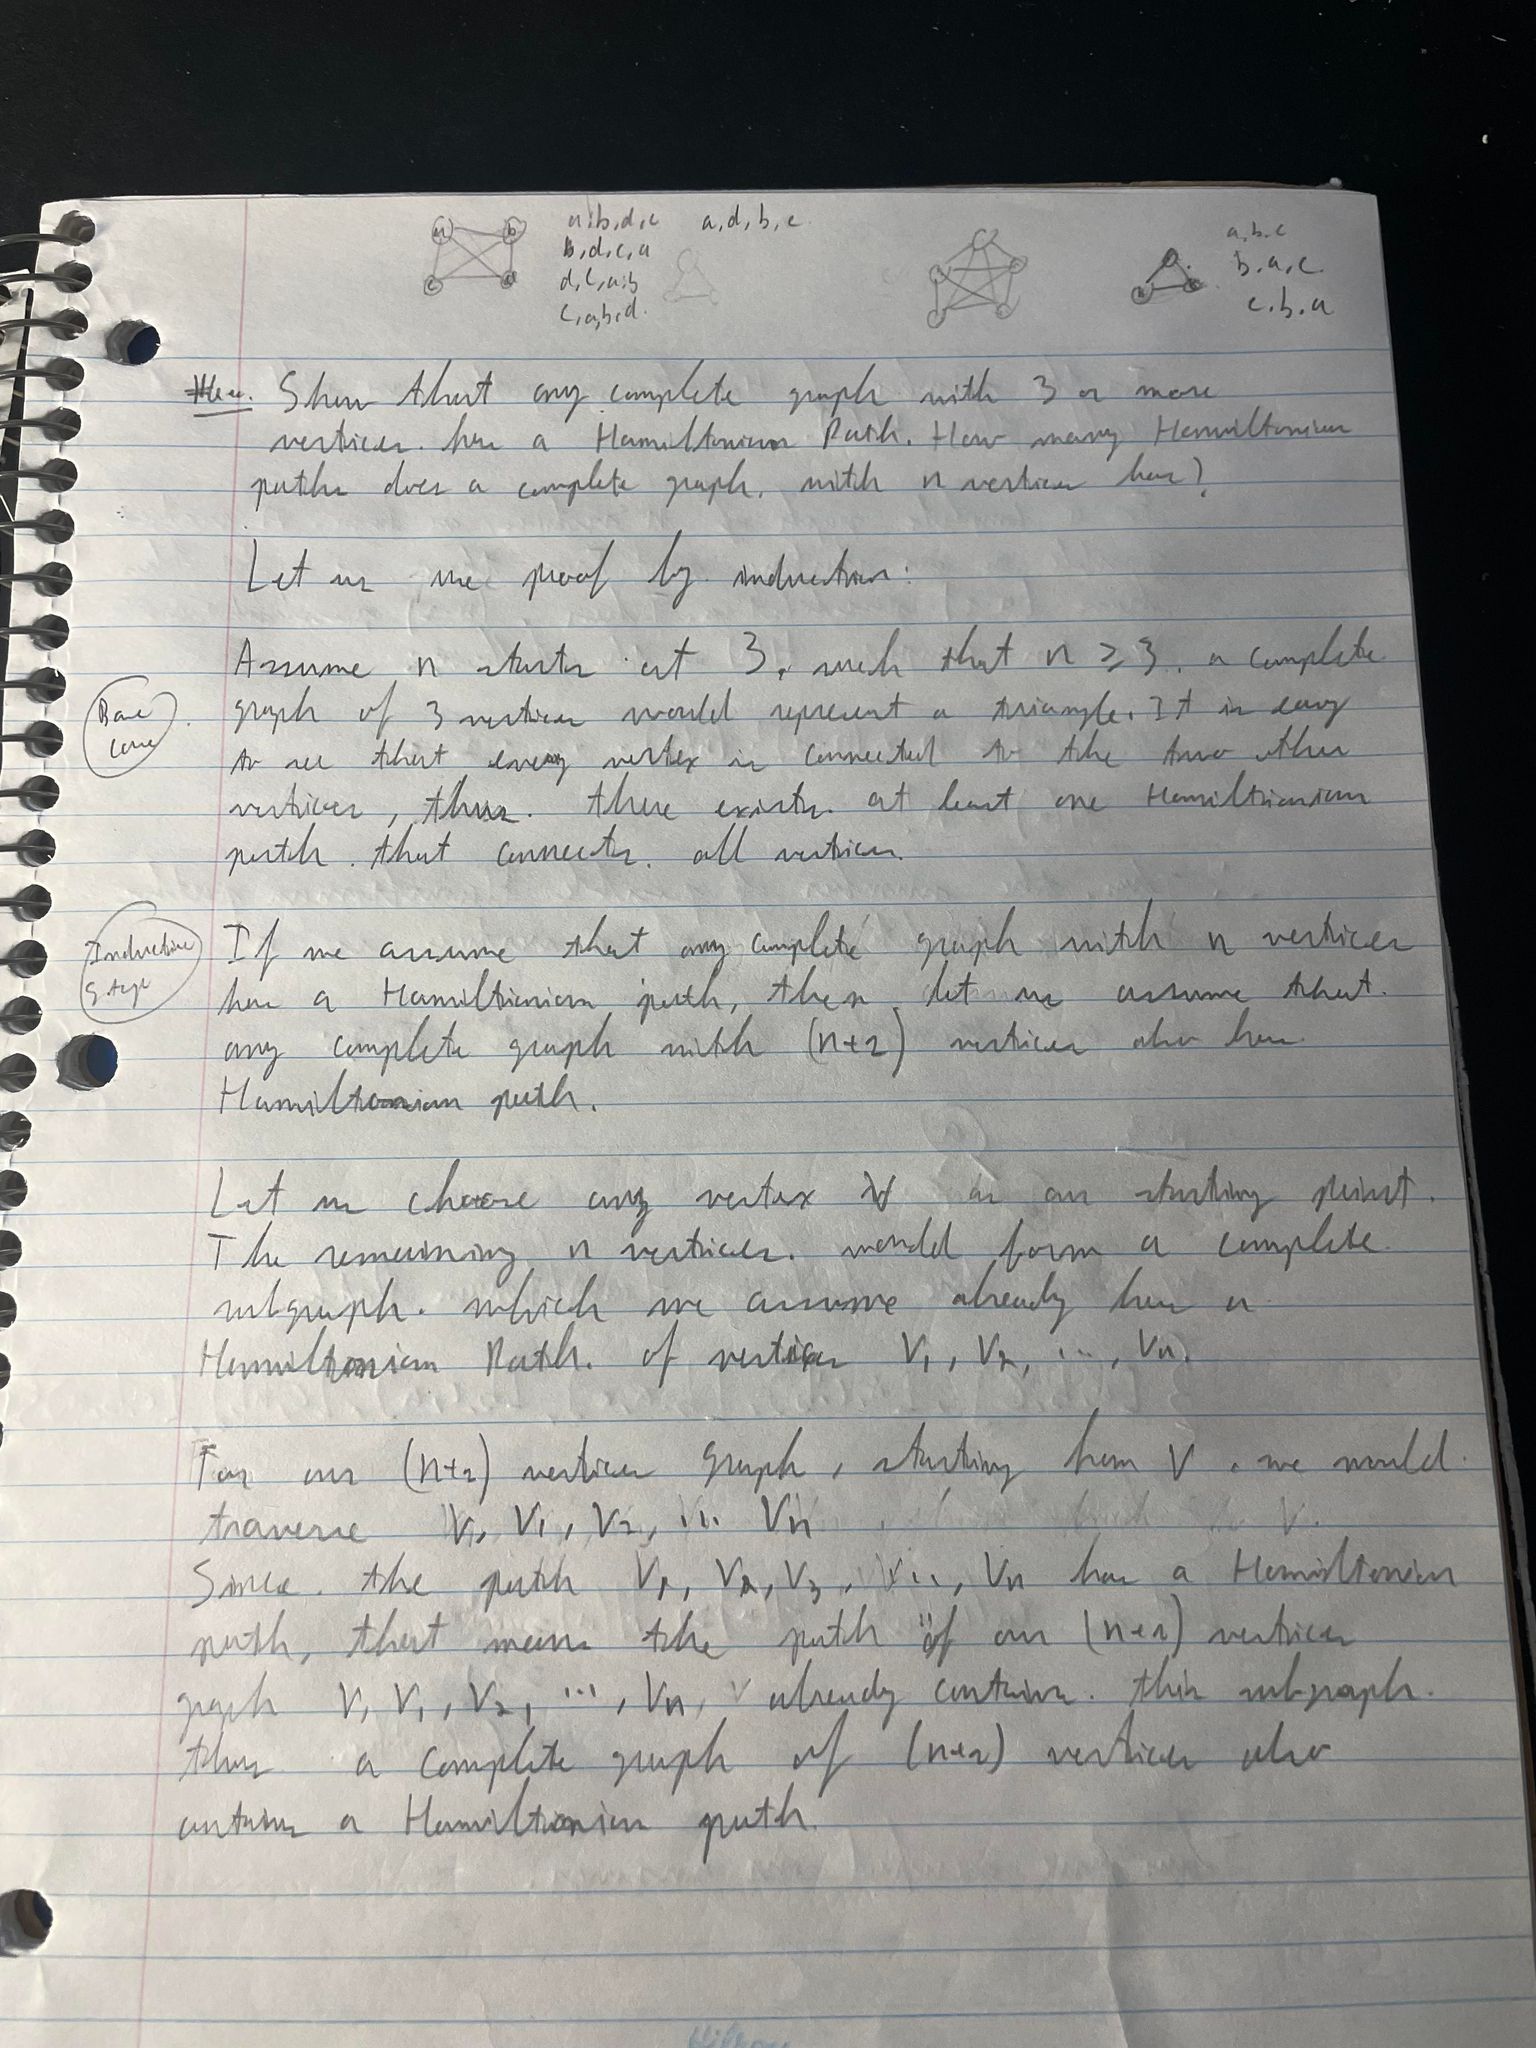 a,b,d,c a,d,b,c
b,d,c,a
d,c,a,b
c,a,b,d.
a,b,c
b,a,c.
c,b,a
Show that any complete graph with 3 or more
vertices has a Hamiltonian Path. How many Hamiltonian
paths does a complete graph with n vertices have?
Let us use proof by induction:
Assume n starts at 3, such that n ≥ 3. a complete
Base
case
graph of 3 vertices would represent a triangle. It is easy
to see that every vertex is connected to the two other
vertices, thus there exists at least one Hamiltonian
path that connects all vertices.
Inductive
Step
If we assume that any complete graph with n vertices
has a Hamiltonian path, then let us assume that
any complete graph with (n+1) vertices also has
Hamiltonian path.
Let us choose any vertex V as our starting point.
The remaining n vertices would form a complete
subgraph which we assume already has a
Hamiltonian Path of vertices V₁, V₂, ..., Vn.
For our (n+1) vertices graph, starting from V, we would
traverse V, V₁, V₂, ... Vn
Since the path V₁, V₂, V₃, ..., Vn has a Hamiltonian
path, that means the path of our (n+1) vertices
graph V, V₁, V₂, ..., Vn, already contains this subgraph.
thus a complete graph of (n+1) vertices also
contains a Hamiltonian path.